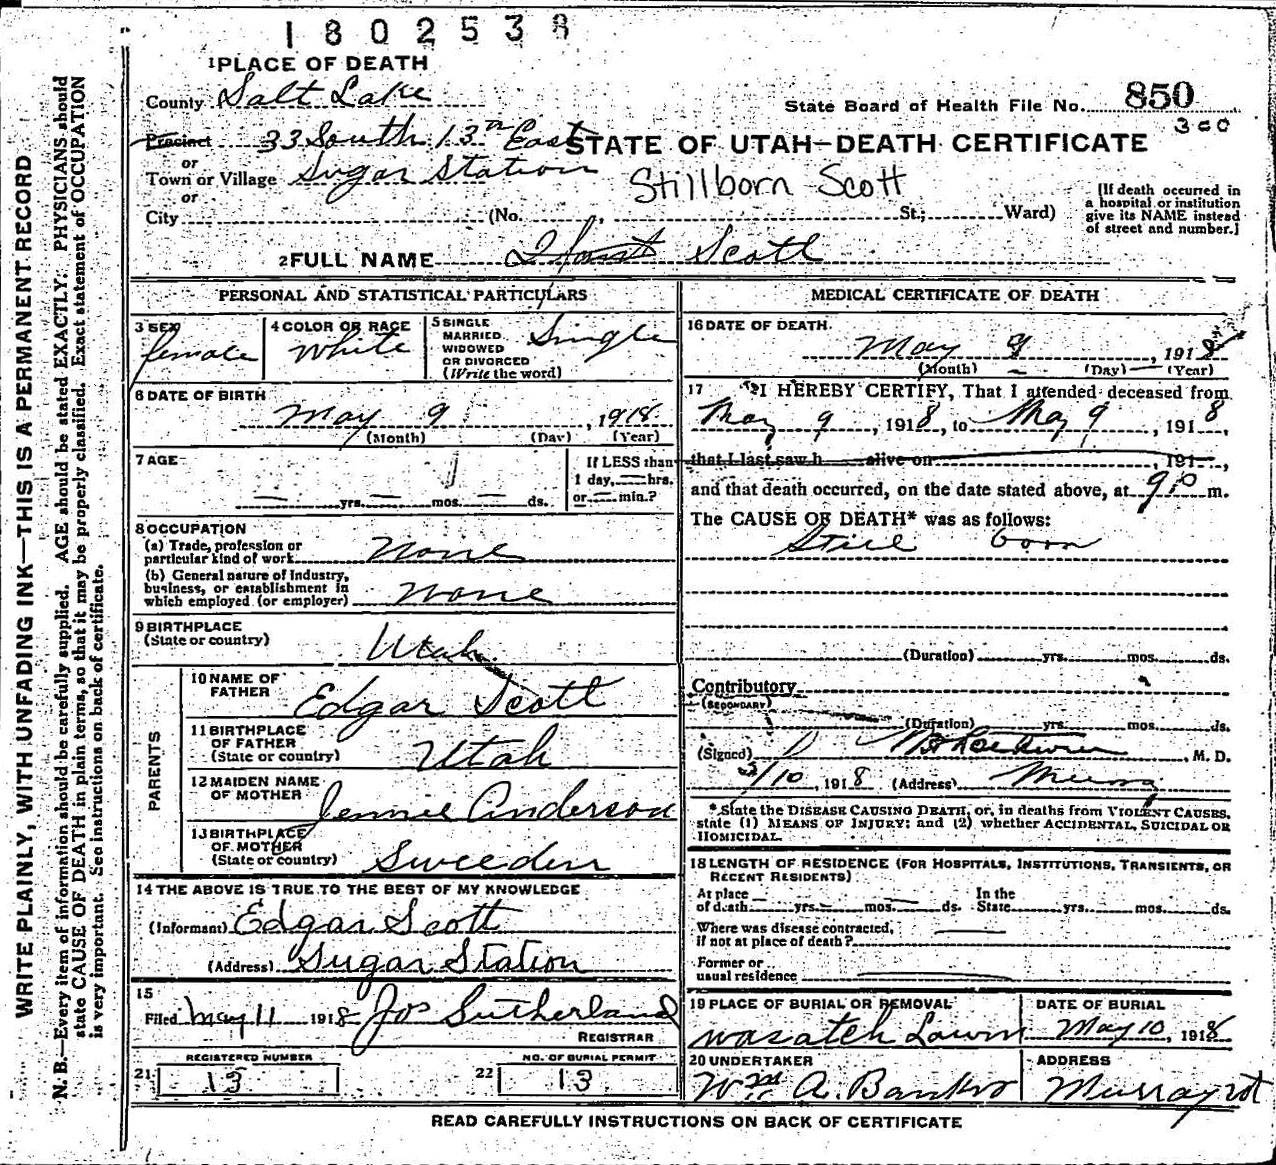 1802538
1 PLACE OF DEATH
County Salt Lake
State Board of Health File No. 850
300
Precinct 33 South 13th East
STATE OF UTAH—DEATH CERTIFICATE
or
Town or Village Sugar Station
Stillborn Scott
or
City (No. , St.; Ward)
[If death occurred in
a hospital or institution
give its NAME instead
of street and number.]
2 FULL NAME Infant Scott
PERSONAL AND STATISTICAL PARTICULARS
3 SEX female
4 COLOR OR RACE White
5 SINGLE
MARRIED
WIDOWED
OR DIVORCED
(Write the word)
Single
6 DATE OF BIRTH
May 9, 1918
(Month) (Day) (Year)
7 AGE
— yrs. — mos. — ds.
If LESS than
1 day, — hrs.
or — min.?
8 OCCUPATION
(a) Trade, profession or
particular kind of work None
(b) General nature of Industry,
business, or establishment in
which employed (or employer) None
9 BIRTHPLACE
(State or country) Utah
PARENTS
10 NAME OF
FATHER Edgar Scott
11 BIRTHPLACE
OF FATHER
(State or country) Utah
12 MAIDEN NAME
OF MOTHER Jennie Anderson
13 BIRTHPLACE
OF MOTHER
(State or country) Sweeden
14 THE ABOVE IS TRUE TO THE BEST OF MY KNOWLEDGE
(Informant) Edgar Scott
(Address) Sugar Station
15
Filed May 11 1918 Jos Sutherland
REGISTRAR
REGISTERED NUMBER
21 13
NO. OF BURIAL PERMIT
22 13
MEDICAL CERTIFICATE OF DEATH
16 DATE OF DEATH.
May 9, 1918
(Month) (Day) (Year)
17 I HEREBY CERTIFY, That I attended deceased from
May 9, 1918, to May 9, 1918,
that I last saw h alive on , 191 ,
and that death occurred, on the date stated above, at 9 10 m.
The CAUSE OF DEATH* was as follows:
Still born
(Duration) yrs. mos. ds.
Contributory
(SECONDARY)
(Duration) yrs. mos. ds.
(Signed) , M. D.
5/10, 1918 (Address) Murray
*State the DISEASE CAUSING DEATH, or, in deaths from VIOLENT CAUSES,
state (1) MEANS OF INJURY; and (2) whether ACCIDENTAL, SUICIDAL OR
HOMICIDAL.
18 LENGTH OF RESIDENCE (FOR HOSPITALS, INSTITUTIONS, TRANSIENTS, OR
RECENT RESIDENTS)
At place In the
of death — yrs. — mos. — ds. State yrs. mos. ds.
Where was disease contracted,
if not at place of death?
Former or
usual residence
19 PLACE OF BURIAL OR REMOVAL
Wasatch Lawn
DATE OF BURIAL
May 10, 1918
20 UNDERTAKER
Wm A. Banks
ADDRESS
Murray
READ CAREFULLY INSTRUCTIONS ON BACK OF CERTIFICATE
WRITE PLAINLY, WITH UNFADING INK—THIS IS A PERMANENT RECORD
N. B.—Every item of information should be carefully supplied. AGE should be stated EXACTLY; PHYSICIANS should
state CAUSE OF DEATH in plain terms, so that it may be properly classified. Exact statement of OCCUPATION
is very important. See instructions on back of certificate.